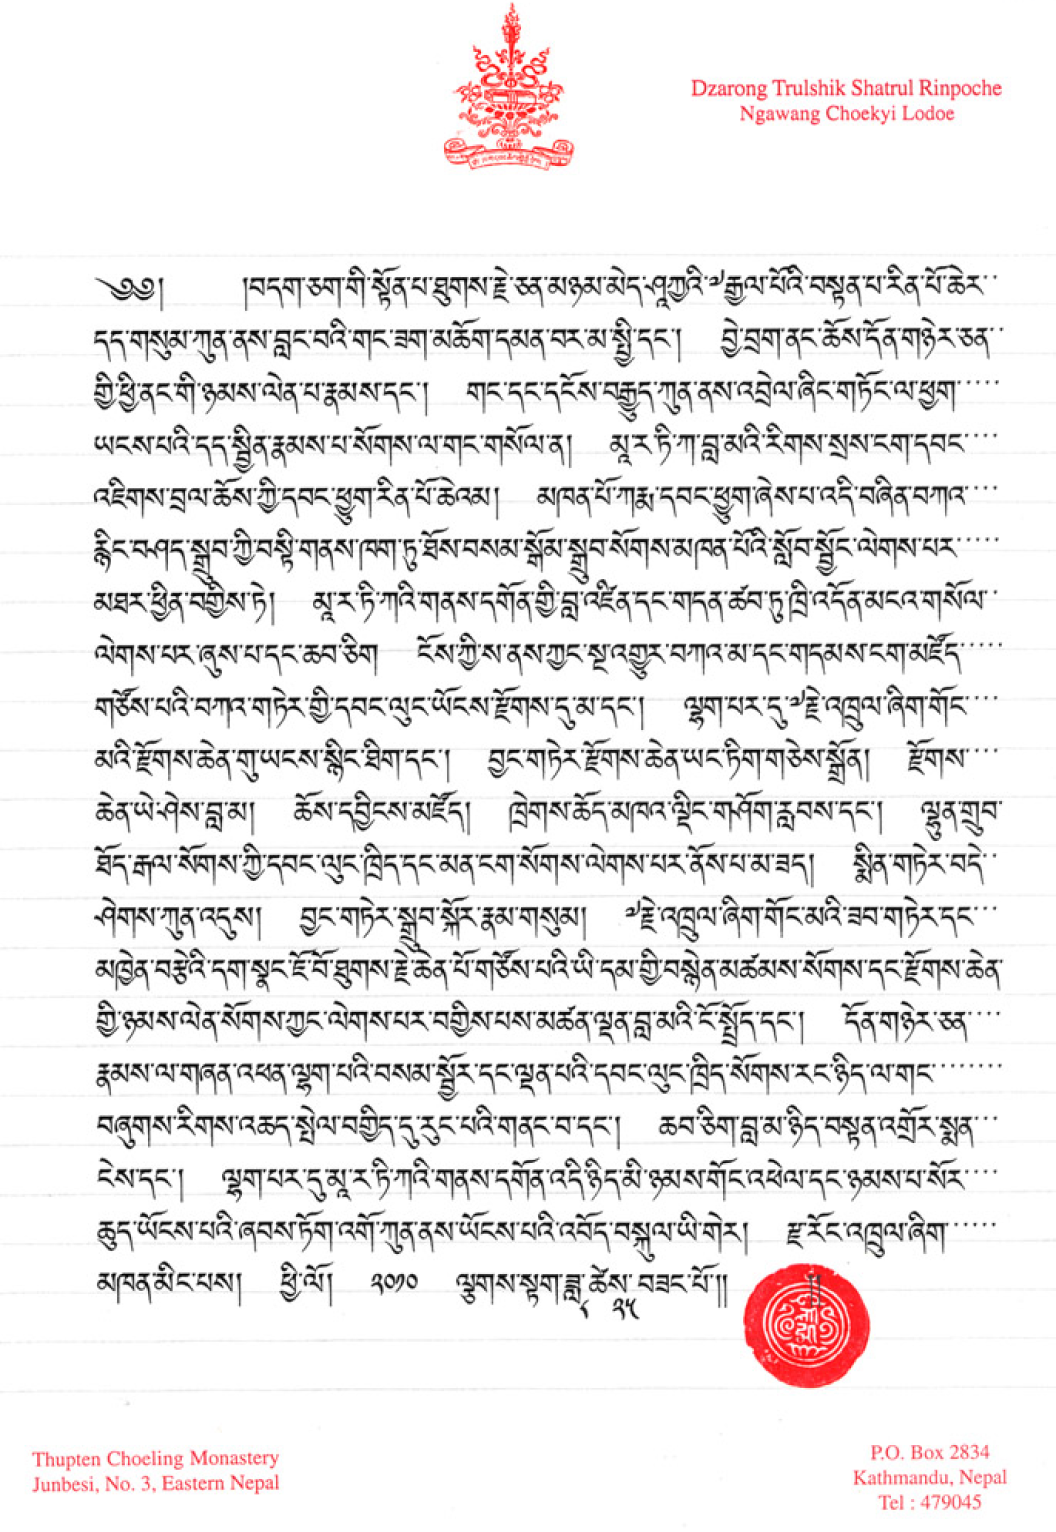 Dzarong Trulshik Shatrul Rinpoche
Ngawang Choekyi Lodoe
༄༅། །བདག་ཅག་གི་སྟོན་པ་ཐུགས་རྗེ་ཅན་མཉམ་མེད་ཤཱཀྱའི་༧རྒྱལ་པོའི་བསྟན་པ་རིན་པོ་ཆེར་་
དད་གསུམ་ཀུན་ནས་བླང་བའི་གང་ཟག་མཆོག་དམན་བར་མ་སྤྱི་དང་། བྱེ་བྲག་ནང་ཆོས་དོན་གཉེར་ཅན་་
གྱི་ཕྱི་ནང་གི་ཉམས་ལེན་པ་རྣམས་དང་། གང་དང་དངོས་བརྒྱུད་ཀུན་ནས་འབྲེལ་ཞིང་གཏོང་ལ་ཕྱག་་་་་
ཡངས་པའི་དད་སྦྱིན་རྣམས་པ་སོགས་ལ་གང་གསོལ་ན། མཱ་ར་ཏི་ཀ་བླ་མའི་རིགས་སྲས་ངག་དབང་་་་
འཇིགས་བྲལ་ཆོས་ཀྱི་དབང་ཕྱུག་རིན་པོ་ཆེའམ། མཁན་པོ་ཀརྨ་དབང་ཕྱུག་ཞེས་པ་འདི་བཞིན་བཀའ་་་་
རྙིང་བཤད་སྒྲུབ་ཀྱི་བསྟི་གནས་ཁག་ཏུ་ཐོས་བསམ་སྒོམ་སྒྲུབ་སོགས་མཁན་པོའི་སློབ་སྦྱོང་ལེགས་པར་་་་་
མཐར་ཕྱིན་བགྱིས་ཏེ། མཱ་ར་ཏི་ཀའི་གནས་དགོན་གྱི་བླ་འཛིན་དང་གདན་ཚབ་ཏུ་ཁྲི་འདོན་མངའ་གསོལ་་
ལེགས་པར་ཞུས་པ་དང་ཆབ་ཅིག ངོས་ཀྱི་ས་ནས་ཀྱང་སྔ་འགྱུར་བཀའ་མ་དང་གདམས་ངག་མཛོད་་་་་
གཙོས་པའི་བཀའ་གཏེར་གྱི་དབང་ལུང་ཡོངས་རྫོགས་དུ་མ་དང་། ལྷག་པར་དུ་༧རྗེ་འཁྲུལ་ཞིག་གོང་་་་
མའི་རྫོགས་ཆེན་གུ་ཡངས་སྙིང་ཐིག་དང་། བྱང་གཏེར་རྫོགས་ཆེན་ཡང་ཏིག་གཅེས་སྒྲོན། རྫོགས་་་་
ཆེན་ཡེ་ཤེས་བླ་མ། ཆོས་དབྱིངས་མཛོད། ཁྲེགས་ཆོད་མཁའ་ལྡིང་གཤོག་རླབས་དང་། ལྷུན་གྲུབ་
ཐོད་རྒལ་སོགས་ཀྱི་དབང་ལུང་ཁྲིད་དང་མན་ངག་སོགས་ལེགས་པར་ནོས་པ་མ་ཟད། སྨིན་གཏེར་བདེ་་
ཤེགས་ཀུན་འདུས། བྱང་གཏེར་སྒྲུབ་སྐོར་རྣམ་གསུམ། ༧རྗེ་འཁྲུལ་ཞིག་གོང་མའི་ཟབ་གཏེར་དང་་་
མཁྱེན་བརྩེའི་དག་སྣང་ཇོ་བོ་ཐུགས་རྗེ་ཆེན་པོ་གཙོས་པའི་ཡི་དམ་གྱི་བསྙེན་མཚམས་སོགས་དང་རྫོགས་ཆེན་
གྱི་ཉམས་ལེན་སོགས་ཀྱང་ལེགས་པར་བགྱིས་པས་མཚན་ལྡན་བླ་མའི་ངོ་སྤྲོད་དང་། དོན་གཉེར་ཅན་་་་
རྣམས་ལ་གཞན་འཕན་ལྷག་པའི་བསམ་སྦྱོར་དང་ལྡན་པའི་དབང་ལུང་ཁྲིད་སོགས་རང་ཉིད་ལ་གང་་་་་་་་
བཞུགས་རིགས་འཆད་སྤེལ་བགྱིད་དུ་རུང་པའི་གནང་བ་དང་། ཆབ་ཅིག་བླ་མ་ཉིད་བསྟན་འགྲོར་སྨན་་་
ངེས་དང་། ལྷག་པར་དུ་མཱ་ར་ཏི་ཀའི་གནས་དགོན་འདི་ཉིད་མི་ཉམས་གོང་འཕེལ་དང་ཉམས་པ་སོར་་་་
ཆུད་ཡོངས་པའི་ཞབས་ཏོག་འགོ་ཀུན་ནས་ཡོངས་པའི་འབོད་བསྐུལ་ཡི་གེར། རྫ་རོང་འཁྲུལ་ཞིག་་་་་་
མཁན་མིང་པས། ཕྱི་ལོ། ༢༠༡༠ ལྕགས་སྟག་ཟླ་ ༨ ཚེས་ ༢༥ བཟང་པོ།། །།
Thupten Choeling Monastery
Junbesi, No. 3, Eastern Nepal
P.O. Box 2834
Kathmandu, Nepal
Tel : 479045